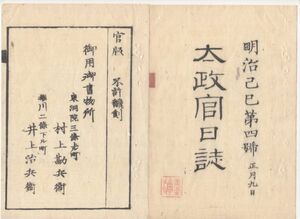 明治己巳第四號
正月九日
太政官日誌
官版
不許飜刻
御用御書物所
東洞院三條上町
村上勘兵衞
堀川二條下ル町
井上治兵衞